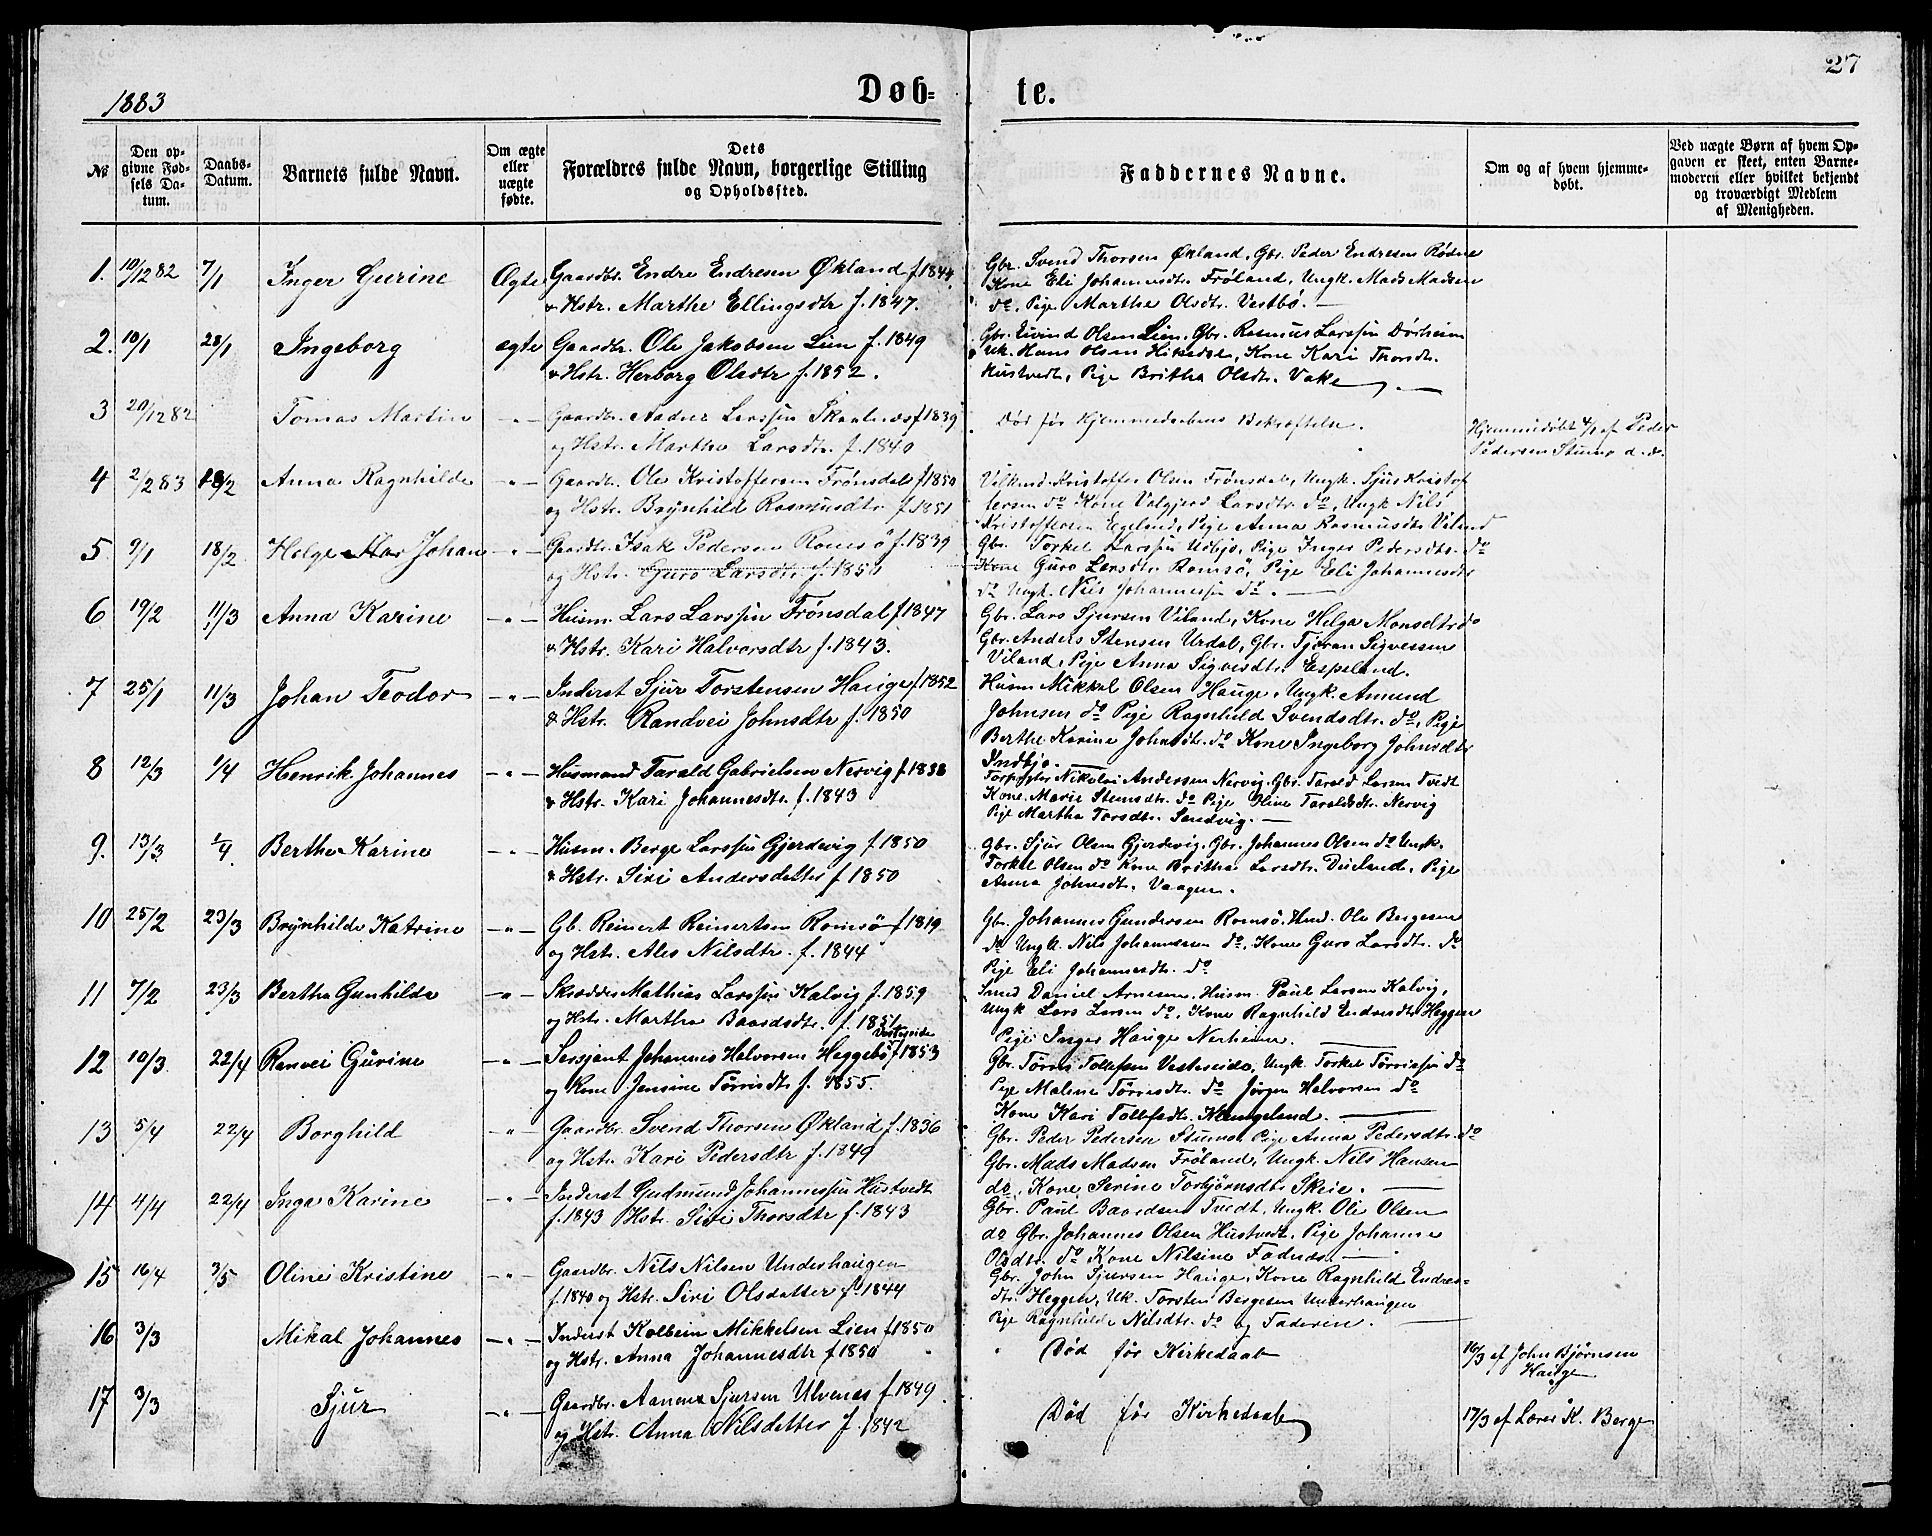 27
1883
Døb-
te.
№
Den op-
givne Fød-
sels Da-
tum.
Daabs-
Datum.
Barnets fulde Navn.
Om ægte
eller
uægte
fødte.
Dets
Forældres fulde Navn, borgerlige Stilling
og Opholdssted.
Faddernes Navne.
Om og af hvem hjemme-
døbt.
Ved uægte Børn af hvem Op-
gaven er skeet, enten Barne-
moderen eller hvilket bekjendt
og troværdigt Medlem
af Menigheden.
1. 10/12 82 7/1 Inger Gurine Ægte Gaardbr. Endre Endresen Økland f. 1844
& Hstr. Marthe Ellingsdtr f. 1847.
Gbr. Svend Thorsen Økland, Gbr. Peder Endresen Rødne
Kone Eli Johannesdtr. Frøland, Ungk. Mads Madsen
do, Pige Marthe Olsdtr. Vestbø. —
2. 10/1 28/1 Ingeborg ægte Gaardbr. Ole Jakobsen Lien f. 1849
& Hstr. Herborg Olsdtr f. 1852.
Gbr. Eivind Olsen Lien, Gbr. Rasmus Larssen
Uk. Hans Olsen Kone Kari Thorsdtr.
Hustvedt, Pige Britha Olsdtr. Vake —
3 20/12 82 Tomas Martin -"- Gaardbr. Aadne Larssen Skaalnes f 1839
og Hstr. Marthe Larsdtr. f. 1840
Død før Hjemmedaabens Bekræftelse.
Hjemmedøbt af Peder
Pedersen Stumo
4 2/2 83 18/2 Anna Ragnhilde -"- Gaardbr. Ole Kristoffersen Frønsdal f 1850
og Hstr. Brynhild Rasmusdtr f. 1851
Kristoffer Olsen Frønsdal, Ungk. Sjur Kristof
fersen do Kone Valgjerd Larsdtr. do, Ungk Nils
Kristoffersen Egeland, Pige Anna Rasmusdtr Viland
5 9/1 18/2 Helge Johan -"- Gaardbr. Isak Pedersen Romsø f. 1839
og Hstr. Guro Larsdtr f. 1850
Gbr. Torkel Larssen Udbjo, Pige Inger Pedersdtr. do
Kone Guro Larsdtr. Romsø, Pige Eli Johannesdtr
do Ungk. Nils Johannessen do. —
6 19/2 11/3 Anna Karine -"- Husm. Lars Larssen Frønsdal f 1847
& Hstr. Kari Halvorsdtr f. 1843.
Gbr. Lars Sjursen Viland, Kone Helga Monsdtr do
Gbr. Anders Stensen Urdal, Gbr. Tjøran Sigvessen
Viland, Pige Anna Sigvesdtr. Espeland.
7 25/1 11/3 Johan Teodor -"- Inderst Sjur Torstensen Hauge f 1852
& Hstr. Randvei Johnsdtr f. 1850
Husm Mikkel Olsen Hauge, Ungk. Amund
Johnsen do Pige Ragnhild Svendsdtr. do, Pige
Berthe Karine Johnsdtr. do Kone Ingeborg Johnsdtr
Indbjo.
8 12/3 1/4 Henrik Johannes -"- Husmand Tarald Gabrielsen Nervig f 1838
& Hstr. Kari Johannesdtr. f. 1843
Nikolai Andersen Nervig, Gbr. Tarald Larsen Tvedt
Kone Marie Stensdtr. do Pige Oline Taraldsdtr. Nervig
Pige Martha Torsdtr. Sandvig. —
9. 13/3 1/4. Berthe Karine -"- Husm. Berge Larssen Gjerdevig f. 1850
& Hstr. Siri Andersdatter f 1850
Gbr. Sjur Olsen Gjerdevig, Gbr. Johannes Olsen do Ungk.
Torkel Olsen do Kone Britha Larsdtr. Duelands, Pige
Anna Johnsdtr. Vaagen.
10 25/2 23/3 Brynhilde Katrine -"- Gb. Reinert Reinertsen Romsø f 1819
og Hstr. Ales Nilsdtr. f. 1844
Gbr. Johannes Gundersen Romsø, Hmd. Ole Bergesen
do Ungk. Nils Johannesen do, Kone Guro Larsdtr. do
Pige Eli Johannesdtr. do
11 7/2 23/3 Bertha Gunhilda -"- Skrædder Mathias Larssen Kalvig f. 1859
og Hstr. Martha Baardsdtr. f. 1851
Smed Daniel Arnesen, Husm. Paul Larsen Kalvig,
Ungk Lars Larsen do, Kone Ragnhild Endresdtr Heggen
Pige Inger Hauge Nerheim. —
12 10/3. 22/4 Ranvei Gurine -"- Sersjant Johannes Halvorsen Heggebø Vestreide f 1853
og Kone Jensine Tørrisdtr f. 1855.
Gbr. Tørris Tollefsen Vestreide, Ungk. Torkel Tørrissen do
Pige Malene Tørrisdtr. do Jørgen Halvorsen do
Kone Kari Tollefsdtr. Kongeland. —
13 5/4 22/4 Borghild -"- Gaardbr. Svend Thorsen Økland f. 1836
og Hstr. Kari Pedersdtr f. 1849
Gbr. Peder Pedersen Stumo, Pige Anna Pedersdtr. do
Gbr. Mads Madsen Frøland, Ungk. Nils Hansen
do, Kone Serine Torbjørnsdtr Skeie. —
14 4/4 22/4 Inga Karine -"- Inderst Gudmund Johannessen Hustvedt
f. 1843 Hstr. Siri Thorsdtr f. 1843
Gbr. Paul Baardsen Tvedt, Ungk. Ole Olsen
do Gbr. Johannes Olsen Hustvedt, Pige Johanne
Olsdtr. do Kone Nilsine Fadnes. —
15 16/4 3/5 Olinei Kristine -"- Gaardbr. Nils Nilsen Underhaugen
f. 1840 og Hstr. Siri Olsdatter f 1844
Gbr. John Sjursen Hauge, Kone Ragnhild Endres-
dtr. Heggen, Uk. Torsten Bergesen Underhaugen
Pige Ragnhilde Nilsdtr. do og Faderen. —
16 3/3 Mikal Johannes -"- Inderst Kolbein Mikkelsen Lien f 1850
og Hstr. Anna Johannesdtr f 1850
Død før Kirkedaab
16/3 af John Bjørnsen
Hauge
17 3/3 Sjur -"- Gaardbr. Aanen Sjursen Ulvenes f 1849
og Hstr. Anna Nilsdatter f. 1842
Død før Kirkedaab
17/3 af Lærer K. Berge